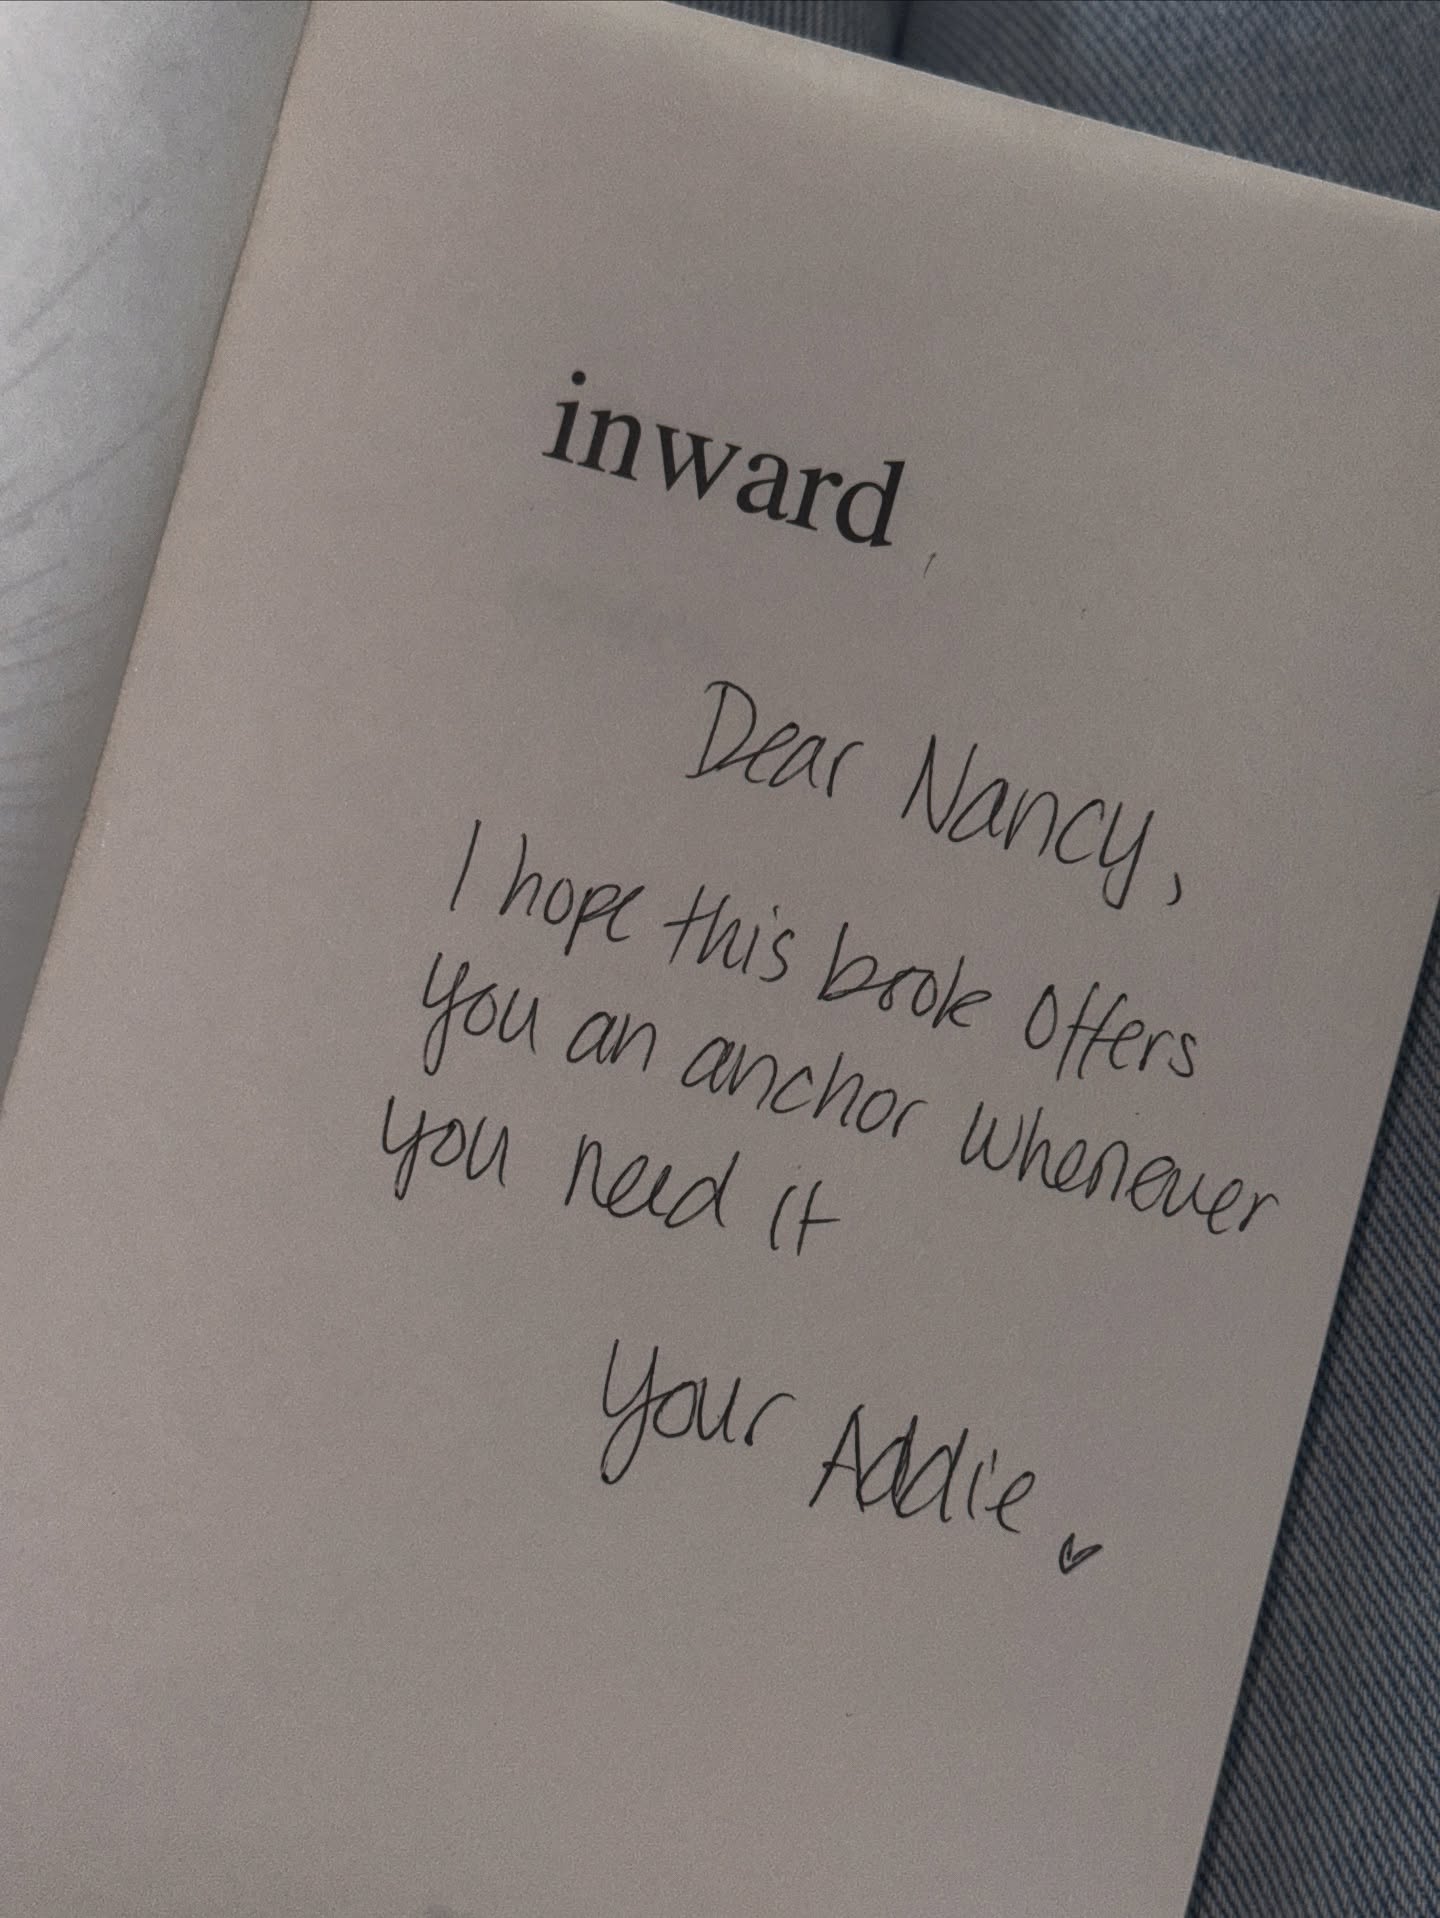 inward
Dear Nancy,
I hope this book offers
you an anchor whenever
you need it
Your Addie